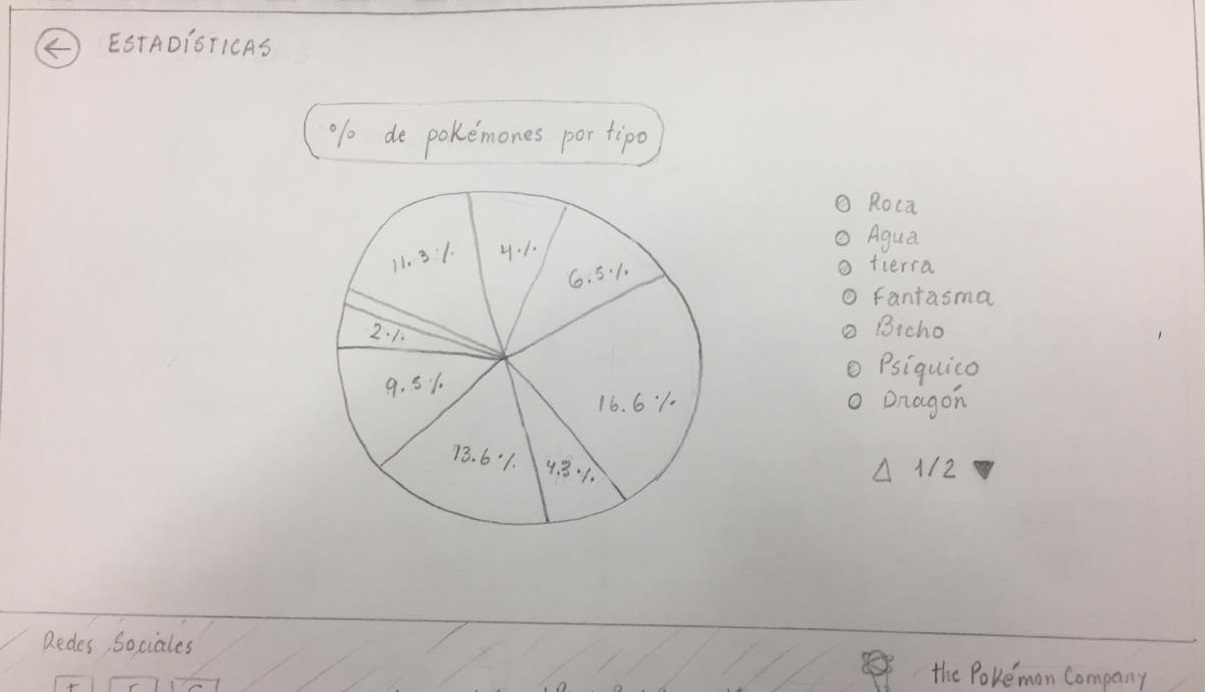 ← ESTADÍSTICAS
% de pokémones por tipo
11.3%
4%
6.5%
2%
9.5%
16.6%
13.6%
4.3%
Roca
Agua
tierra
Fantasma
Bicho
Psíquico
Dragón
△ 1/2 ▼
Redes Sociales
the Pokémon Company